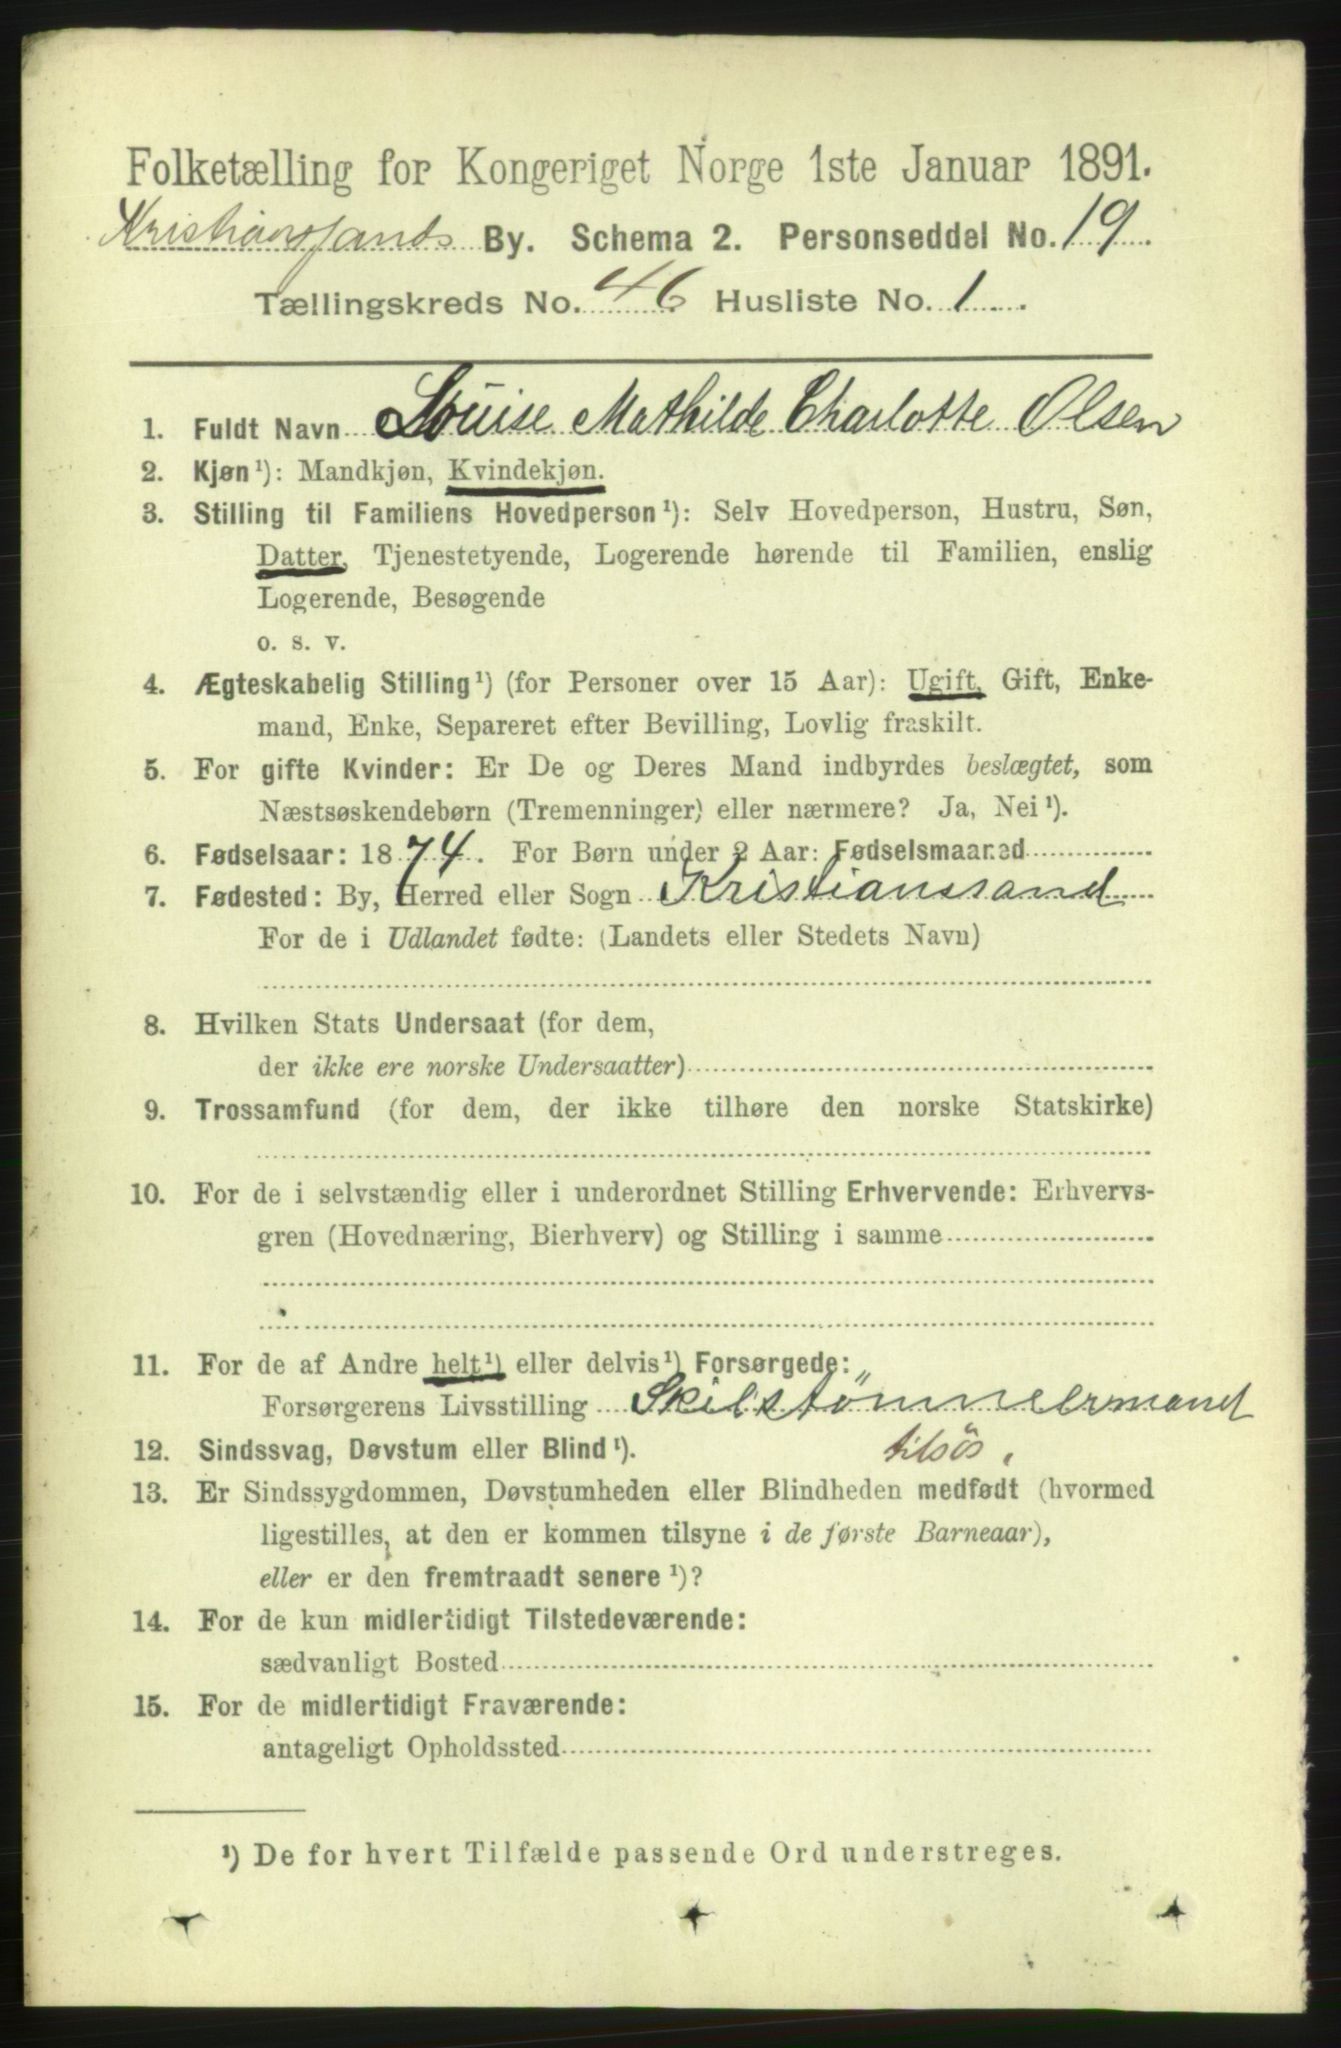 Folketælling for Kongeriget Norge 1ste Januar 1891.
Kristianssands By. Schema 2. Personseddel No. 19
Tællingskreds No. 46 Husliste No. 1
1. Fuldt Navn Louise Mathilde Charlotte Olsen
2. Kjøn¹): Mandkjøn, Kvindekjøn.
3. Stilling til Familiens Hovedperson¹): Selv Hovedperson, Hustru, Søn,
Datter, Tjenestetyende, Logerende hørende til Familien, enslig
Logerende, Besøgende
o. s. v.
4. Ægteskabelig Stilling¹) (for Personer over 15 Aar): Ugift, Gift, Enke-
mand, Enke, Separeret efter Bevilling, Lovlig fraskilt.
5. For gifte Kvinder: Er De og Deres Mand indbyrdes beslægtet, som
Næstsøskendebørn (Tremenninger) eller nærmere? Ja, Nei¹).
6. Fødselsaar: 1874. For Børn under 2 Aar: Fødselsmaaned
7. Fødested: By, Herred eller Sogn Kristianssand
For de i Udlandet fødte: (Landets eller Stedets Navn)
8. Hvilken Stats Undersaat (for dem,
der ikke ere norske Undersaatter)
9. Trossamfund (for dem, der ikke tilhøre den norske Statskirke)
10. For de i selvstændig eller i underordnet Stilling Erhvervende: Erhvervs-
gren (Hovednæring, Bierhverv) og Stilling i samme
11. For de af Andre helt¹) eller delvis¹) Forsørgede:
Forsørgerens Livsstilling Skibstømmermand
12. Sindssvag, Døvstum eller Blind¹). tilsøs.
13. Er Sindssygdommen, Døvstumheden eller Blindheden medfødt (hvormed
ligestilles, at den er kommen tilsyne i de første Barneaar),
eller er den fremtraadt senere¹)?
14. For de kun midlertidigt Tilstedeværende:
sædvanligt Bosted
15. For de midlertidigt Fraværende:
antageligt Opholdssted
¹) De for hvert Tilfælde passende Ord understreges.